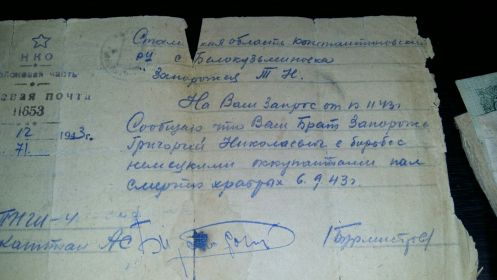 НКО
ПОЛЕВАЯ ПОЧТА
11653
12 1943г.
71
Стал кая область константиновский
ру с Белокузьминовка
Запорожец Т Н.
На Ваш Запрос от 11 43г
Сообщаю что Ваш Брат Запороже
Григорий Николаевич в борьбе с
немецкими оккупантами пал
смертью храбрых 6.9 43г.
Капитан
/Бурмистров/